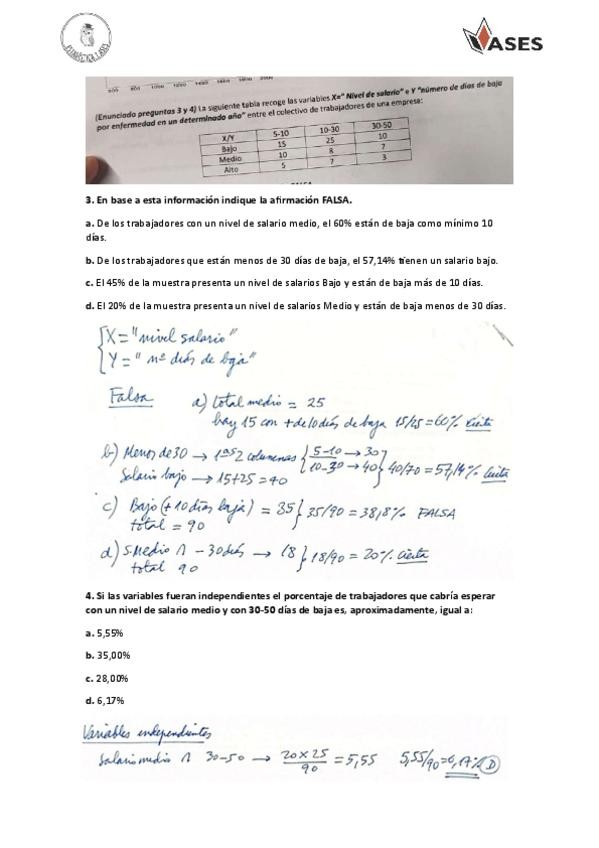 VASES
600 800 1000 1200 1400 1600 1800 2000
(Enunciado preguntas 3 y 4) La siguiente tabla recoge las variables X=" Nivel de salario" e Y "número de días de baja
por enfermedad en un determinado año" entre el colectivo de trabajadores de una empresa:
X/Y 5-10 10-30 30-50
Bajo 15 25 10
Medio 10 8 7
Alto 5 7 3
3. En base a esta información indique la afirmación FALSA.
a. De los trabajadores con un nivel de salario medio, el 60% están de baja como mínimo 10
días.
b. De los trabajadores que están menos de 30 días de baja, el 57,14% tienen un salario bajo.
c. El 45% de la muestra presenta un nivel de salarios Bajo y están de baja más de 10 días.
d. El 20% de la muestra presenta un nivel de salarios Medio y están de baja menos de 30 días.
X = "nivel salario"
Y = " nº días de baja"
Falsa a) total medio = 25
hay 15 con + de 10 días de baja 15/25 = 60% cierta
b) Menos de 30 → 1ªs 2 columnas { 5-10 → 30
10-30 → 40 } 40/70 = 57,14% cierta
Salario bajo → 15+25 = 40
c) Bajo (+10 días baja) = 35 } 35/90 = 38,8% FALSA
total = 90
d) S.Medio ∩ - 30 días → 18 } 18/90 = 20% cierta
total 90
4. Si las variables fueran independientes el porcentaje de trabajadores que cabría esperar
con un nivel de salario medio y con 30-50 días de baja es, aproximadamente, igual a:
a. 5,55%
b. 35,00%
c. 28,00%
d. 6,17%
Variables independientes
Salario medio ∩ 30-50 → 20 x 25 / 90 = 5,55 5,55/90 = 6,17% D